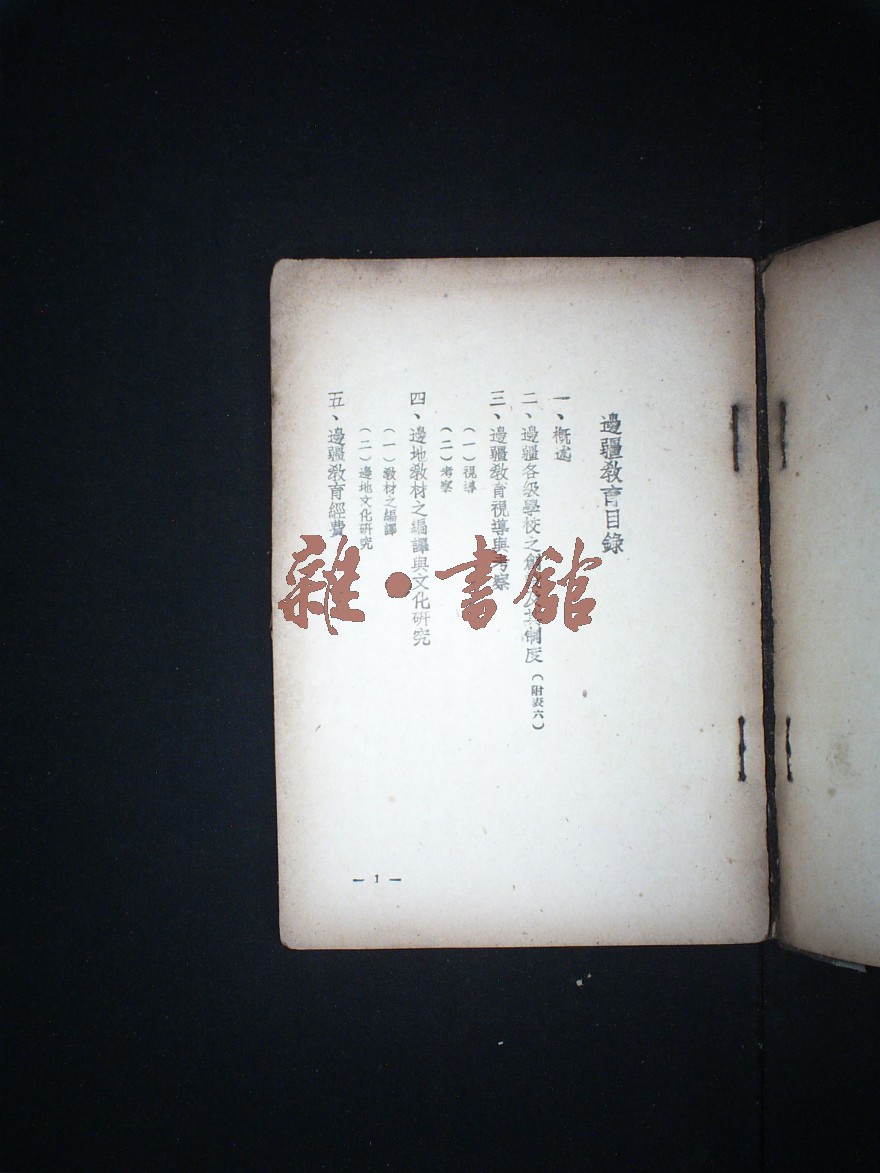 邊疆教育目錄
一、概述
二、邊疆各級學校之創設及其制度（附表六）
三、邊疆教育視導與考察
（一）視導
（二）考察
四、邊地教材之編譯與文化研究
（一）教材之編譯
（二）邊地文化研究
五、邊疆教育經費
— 1 —
雜·書館